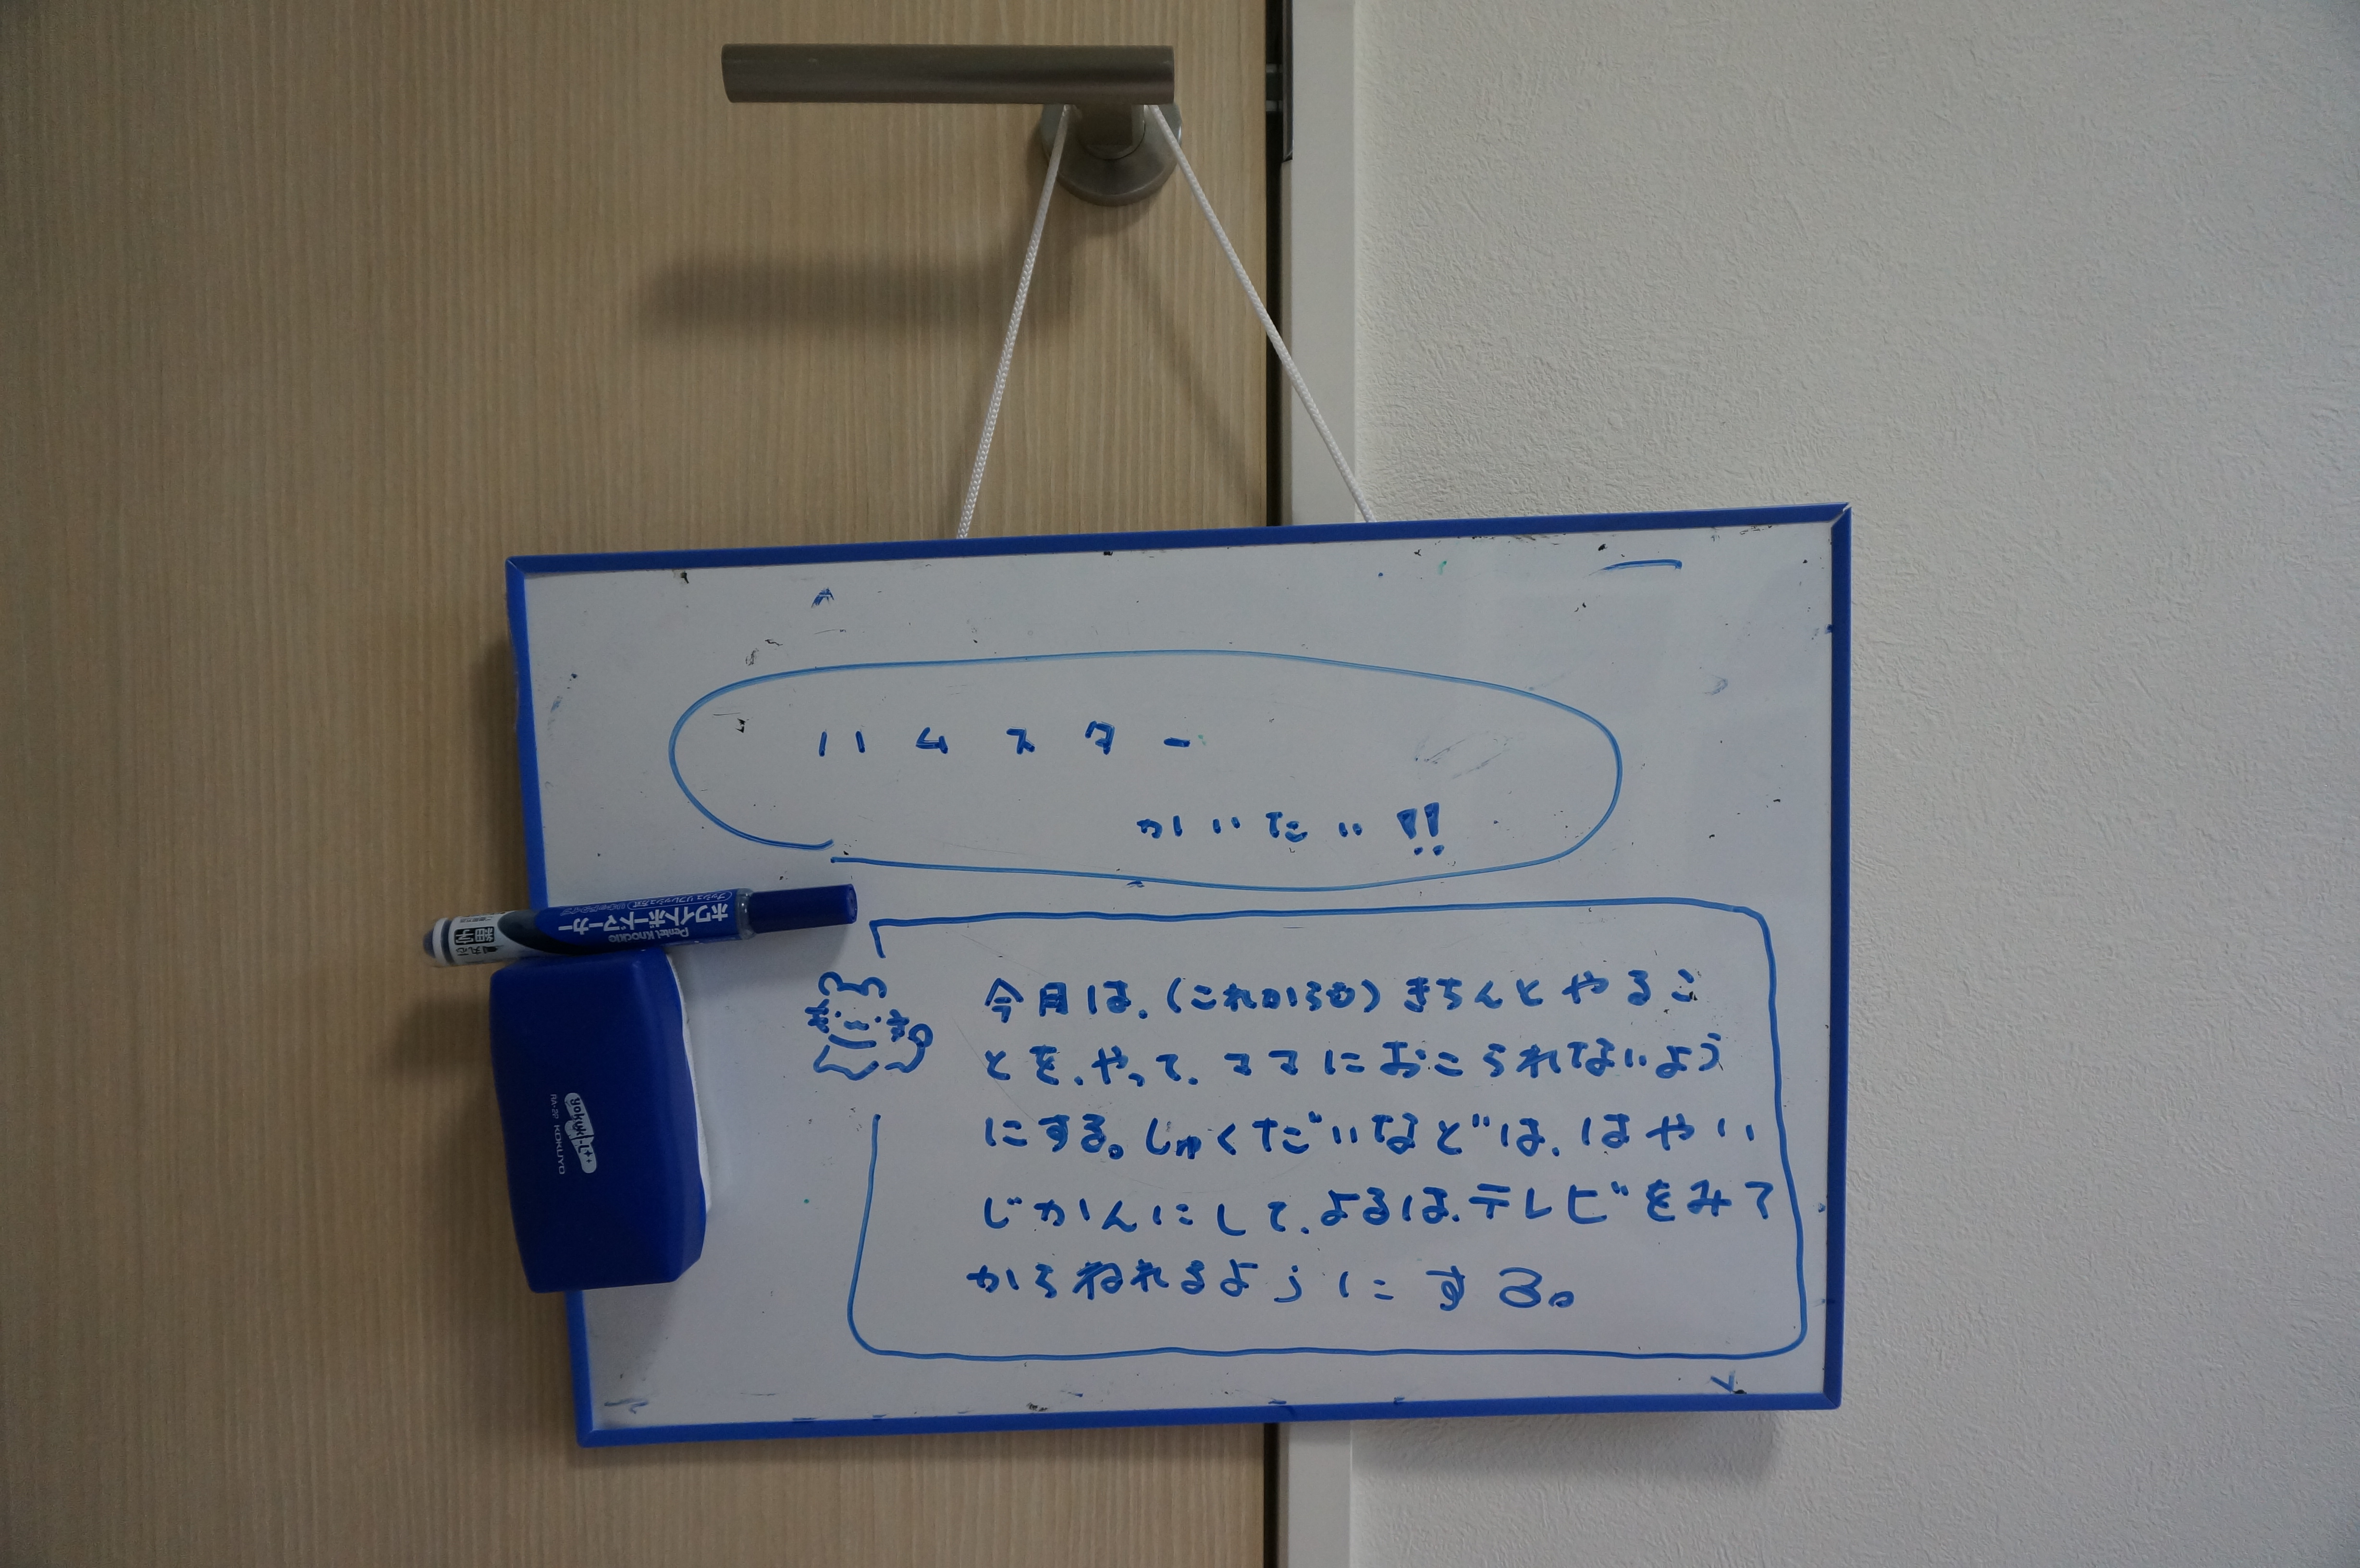 ハムスター
かいたい!!
今月は、(これからも)きちんとやるこ
とを、やって、ママにおこられないよう
にする。しゅくだいなどは、はやい
じかんにして、よるは、テレビをみて
からねれるようにする。
Pentel Knockle
ホワイトボードマーカー
KOKUYO